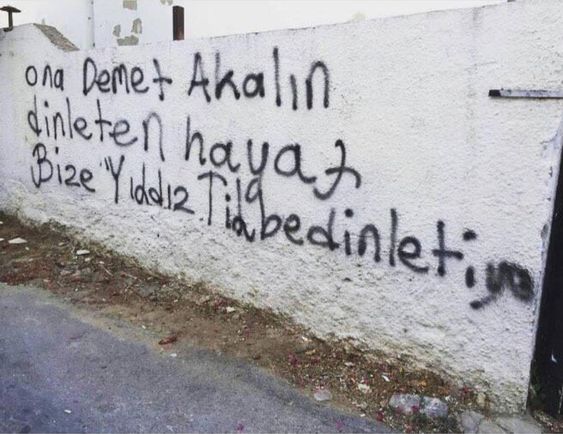 ona Demet Akalın
dinleten hayat
Bize Yıldız Tilbe dinletiyo